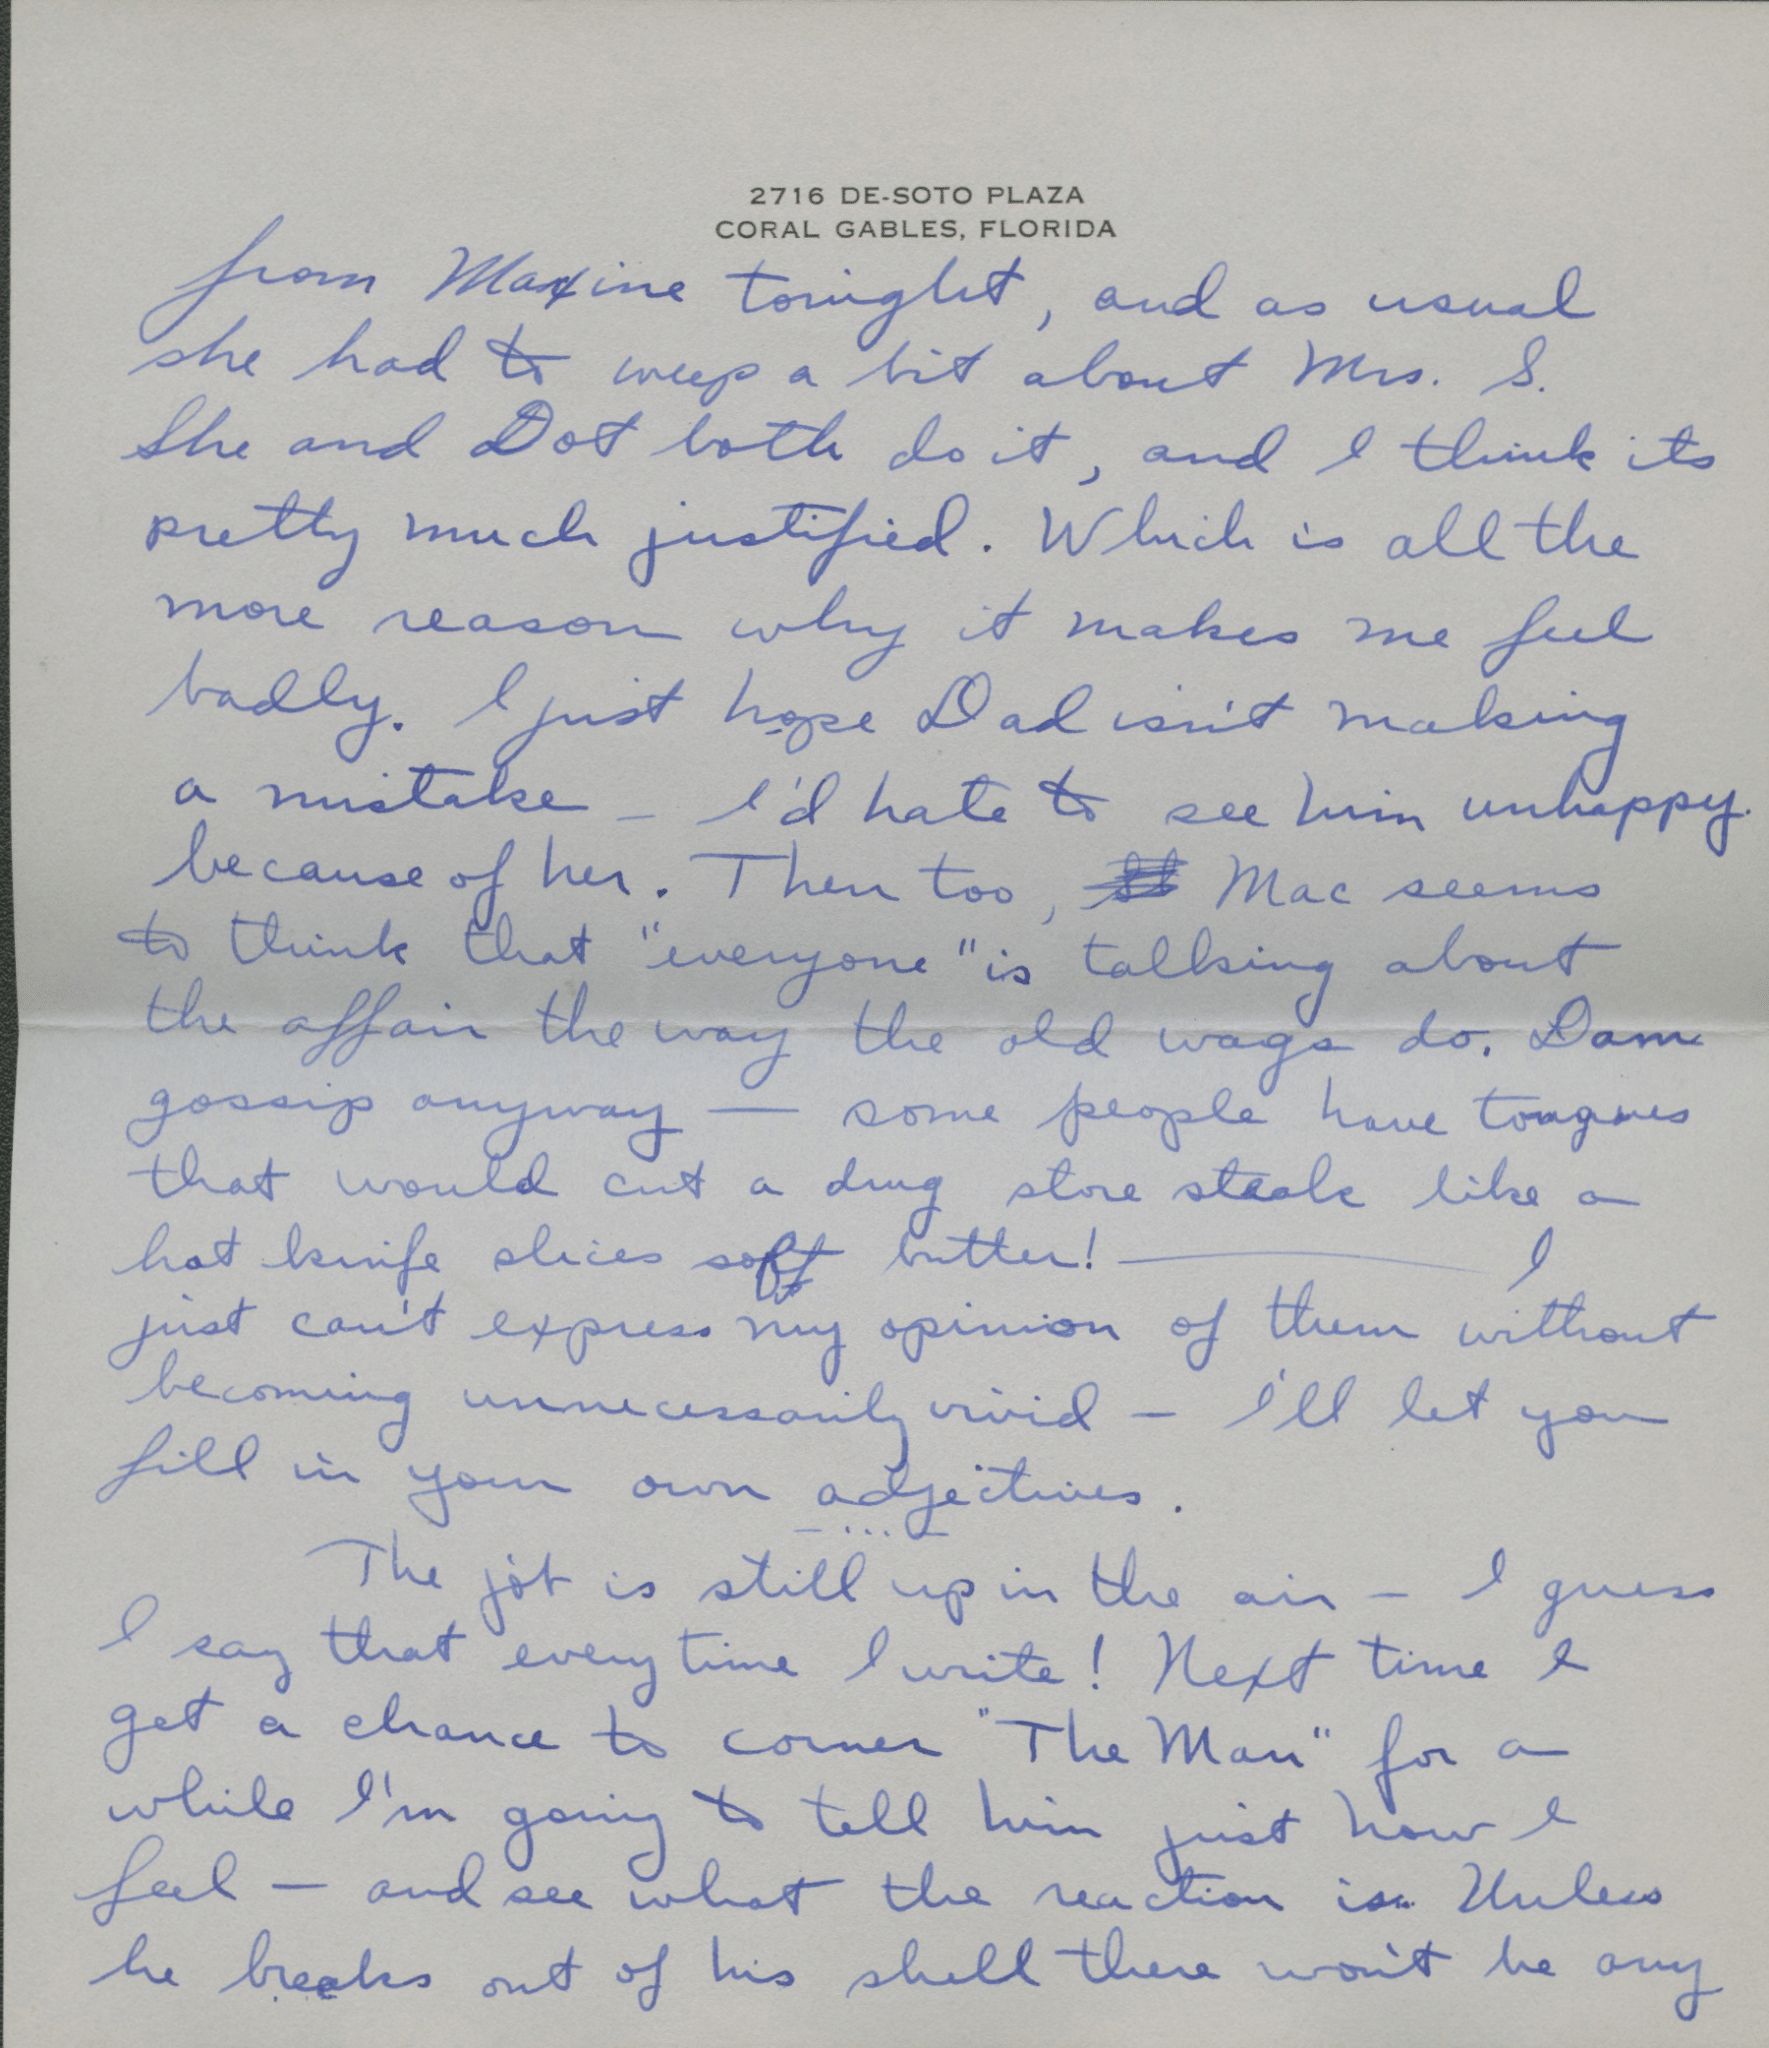 2716 DE-SOTO PLAZA
CORAL GABLES, FLORIDA
from Maxine tonight, and as usual
she had to weep a bit about Mrs. S.
She and Dot both do it, and I think its
pretty much justified. Which is all the
more reason why it makes me feel
badly. I just hope Dad isn't making
a mistake - I'd hate to see him unhappy.
because of her. Then too, Mac seems
to think that "everyone" is talking about
the affair the way the old wags do. Dam
gossip anyway — some people have tongues
that would cut a drug store steak like a
hot knife slices soft butter! — I
just can't express my opinion of them without
becoming unnecessarily vivid - I'll let you
fill in your own adjectives.
- ... -
The job is still up in the air - I guess
I say that every time I write! Next time I
get a chance to corner "The Man" for a
while I'm going to tell him just how I
feel - and see what the reaction is. Unless
he breaks out of his shell there won't be any